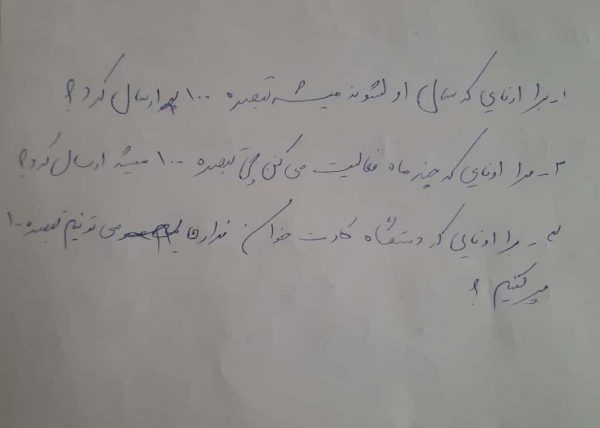 ۱- برا اونایی که سال اولشونه میشه تبصره ۱۰۰ ارسال کرد؟
۲- برا اونایی که چند ماه فعالیت می کنن چی تبصره ۱۰۰ میشه ارسال کرد؟
۳- برا اونایی که دستگاه کارت خوان ندارن می تونیم تبصره ۱۰۰
پر کنیم؟